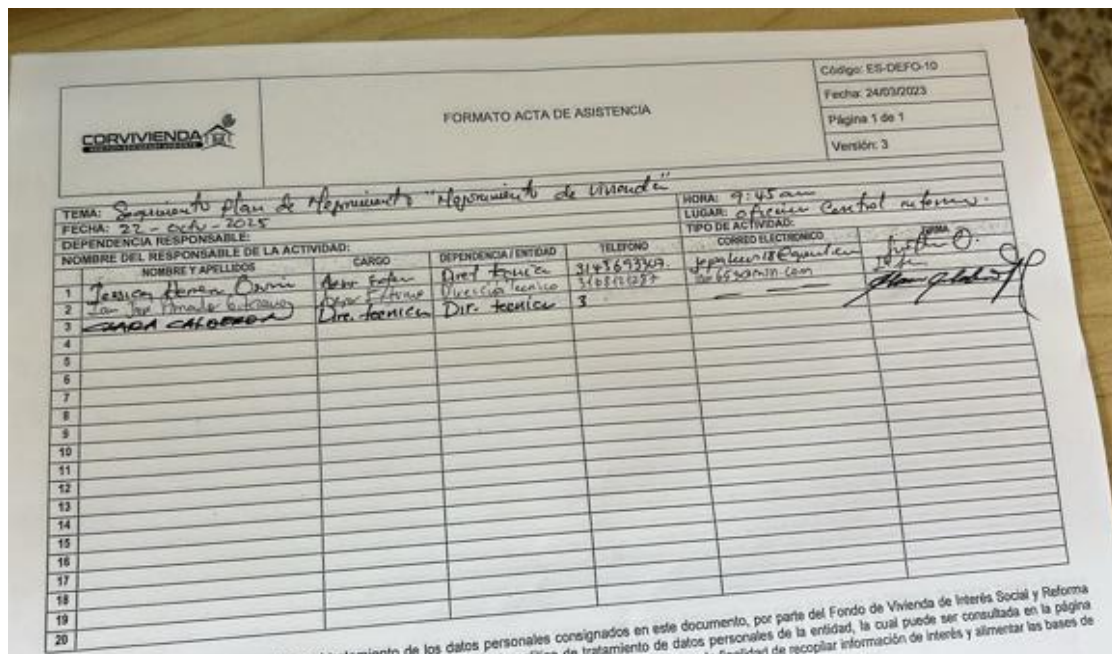 CORVIVIENDA
FORMATO ACTA DE ASISTENCIA
Código: ES-DEFO-10
Fecha: 24/03/2023
Página 1 de 1
Versión: 3
TEMA: Seguimiento plan de Mejoramiento "Mejoramiento de vivienda"
HORA: 9:45 am
FECHA: 22 - octu - 2025
LUGAR: oficina Central
DEPENDENCIA RESPONSABLE:
TIPO DE ACTIVIDAD:
NOMBRE DEL RESPONSABLE DE LA ACTIVIDAD:
NOMBRE Y APELLIDOS CARGO DEPENDENCIA / ENTIDAD TELEFONO CORREO ELECTRONICO FIRMA
1 Jessica Asesor
2 Asesor Externo Dirección Tecnico
3 CLARA CALDERON Dire. tecnica Dir. tecnica 3
4
5
6
7
8
9
10
11
12
13
14
15
16
17
18
19
20
de los datos personales consignados en este documento, por parte del Fondo de Vivienda de Interés Social y Reforma
de tratamiento de datos personales de la entidad, la cual puede ser consultada en la página
finalidad de recopilar información de interés y alimentar las bases de